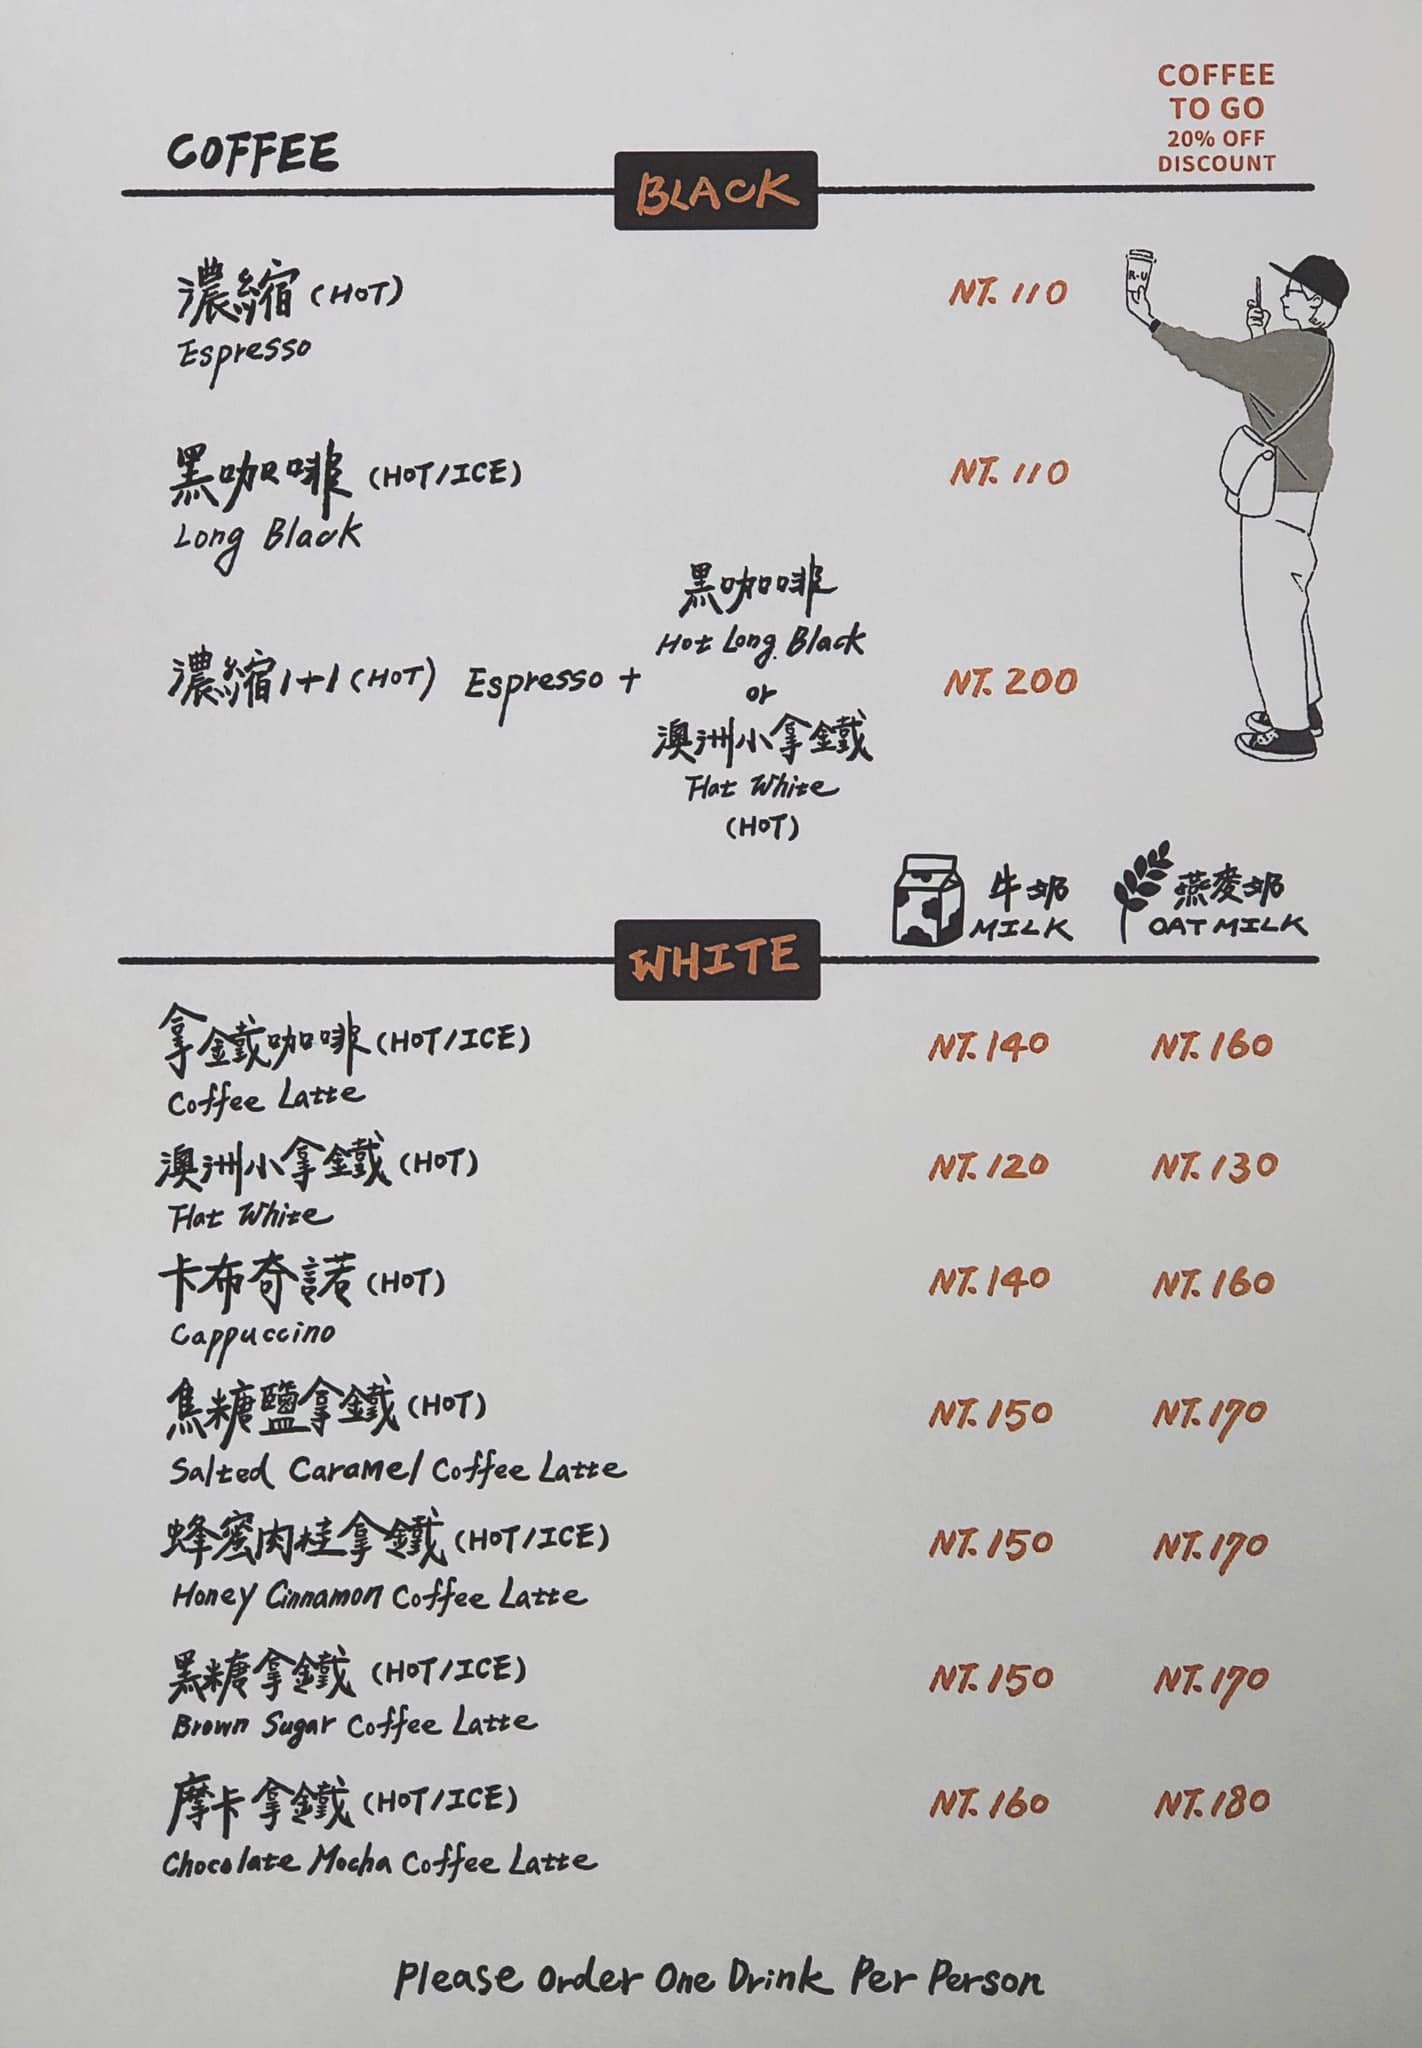 COFFEE
TO GO
20% OFF
DISCOUNT
COFFEE
BLACK
濃縮 (HOT) NT. 110
Espresso
R·U
黑咖啡 (HOT/ICE) NT. 110
Long Black
黑咖啡
Hot Long Black
濃縮1+1 (HOT) Espresso + or NT. 200
澳洲小拿鐵
Flat White
(HOT)
牛奶 燕麥奶
MILK OAT MILK
WHITE
拿鐵咖啡 (HOT/ICE) NT. 140 NT. 160
Coffee Latte
澳洲小拿鐵 (HOT) NT. 120 NT. 130
Flat White
卡布奇諾 (HOT) NT. 140 NT. 160
Cappuccino
焦糖鹽拿鐵 (HOT) NT. 150 NT. 170
Salted Caramel Coffee Latte
蜂蜜肉桂拿鐵 (HOT/ICE) NT. 150 NT. 170
Honey Cinnamon Coffee Latte
黑糖拿鐵 (HOT/ICE) NT. 150 NT. 170
Brown Sugar Coffee Latte
摩卡拿鐵 (HOT/ICE) NT. 160 NT. 180
Chocolate Mocha Coffee Latte
Please Order One Drink Per Person